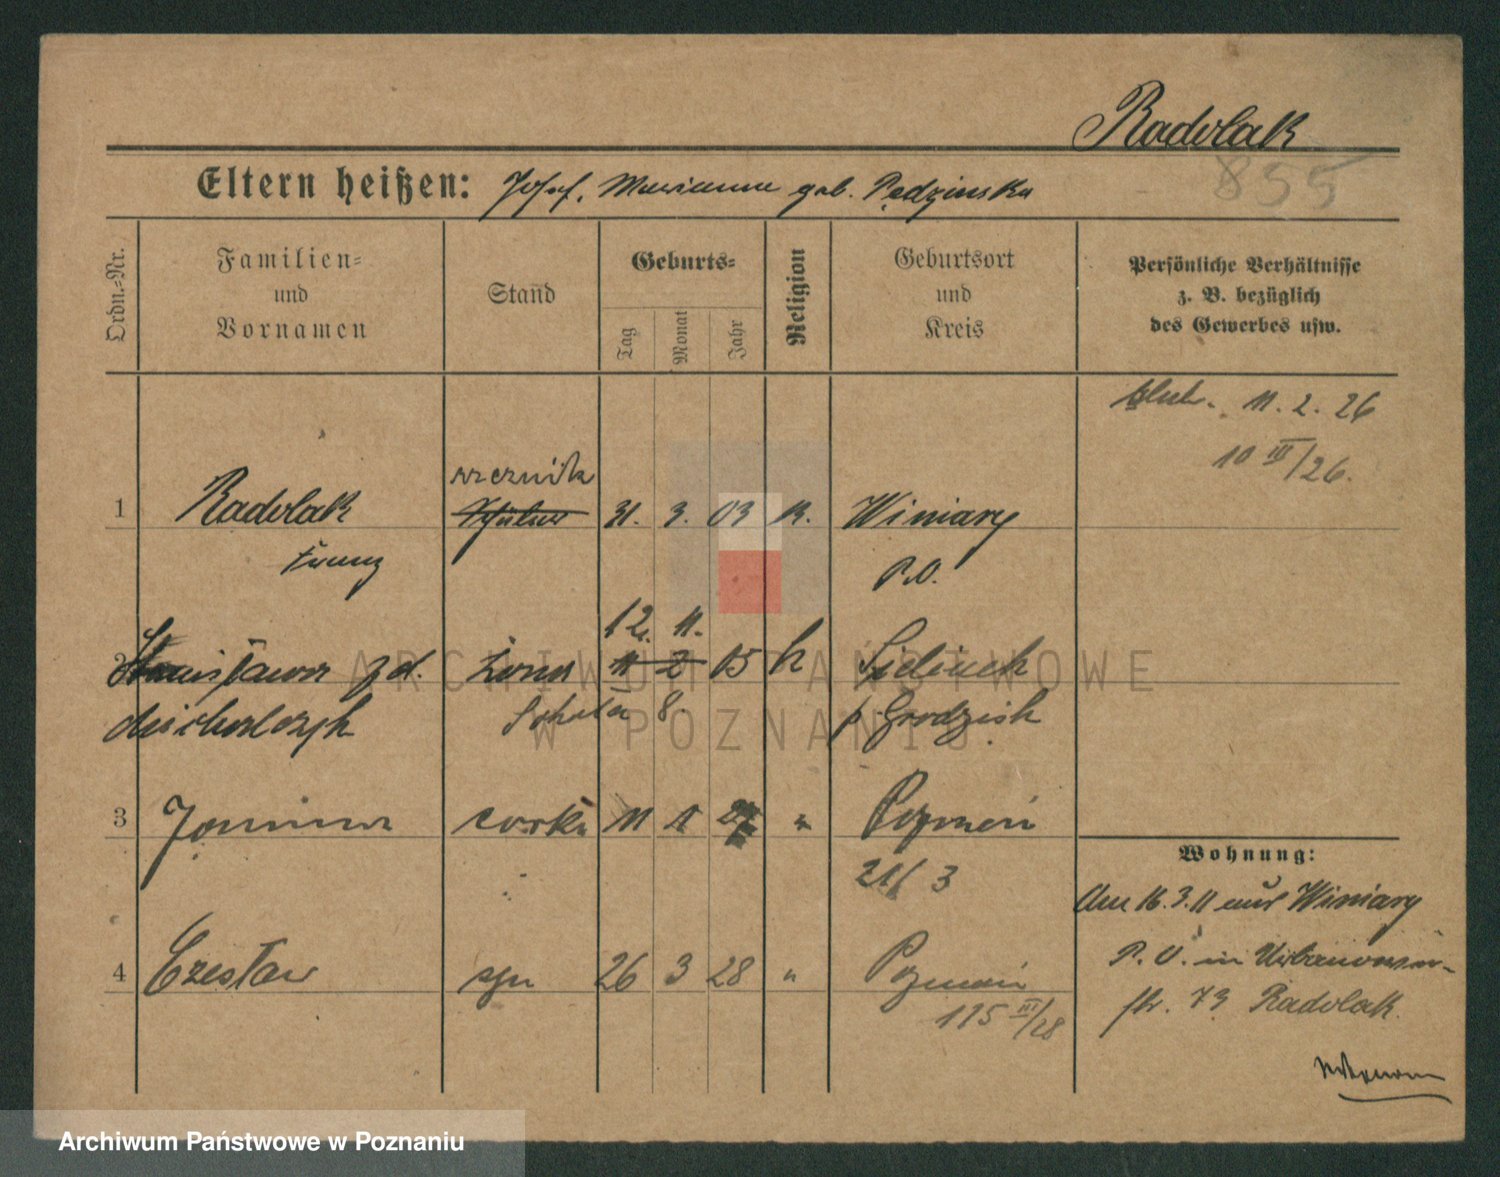 Radolak
855
Eltern heißen: Josef, Marianna geb. Pędzinska
Ordn.-Nr.
Familien- und Vornamen
Stand
Geburts-
Tag
Monat
Jahr
Religion
Geburtsort und Kreis
Persönliche Verhältnisse z. B. bezüglich des Gewerbes usw.
11. 2. 26
10 III/26.
1 Radolak rzeźnik Schüler 31. 3. 03 K. Winiary
Franz P.O.
12. 11.
2 Stanisława zd. żona 11 2 05 k
Michalczyk 8. p Grodzisk
3 Janina córka 11 1 " Poznań
4 Czesław syn 26 3 28 " Poznań
195 III/28
Wohnung:
Am 16.3.11 aus Winiary
P. O. in Urbanowoer-
str. 73 Radolak.
ARCHIWUM PAŃSTWOWE
W POZNANIU
Archiwum Państwowe w Poznaniu